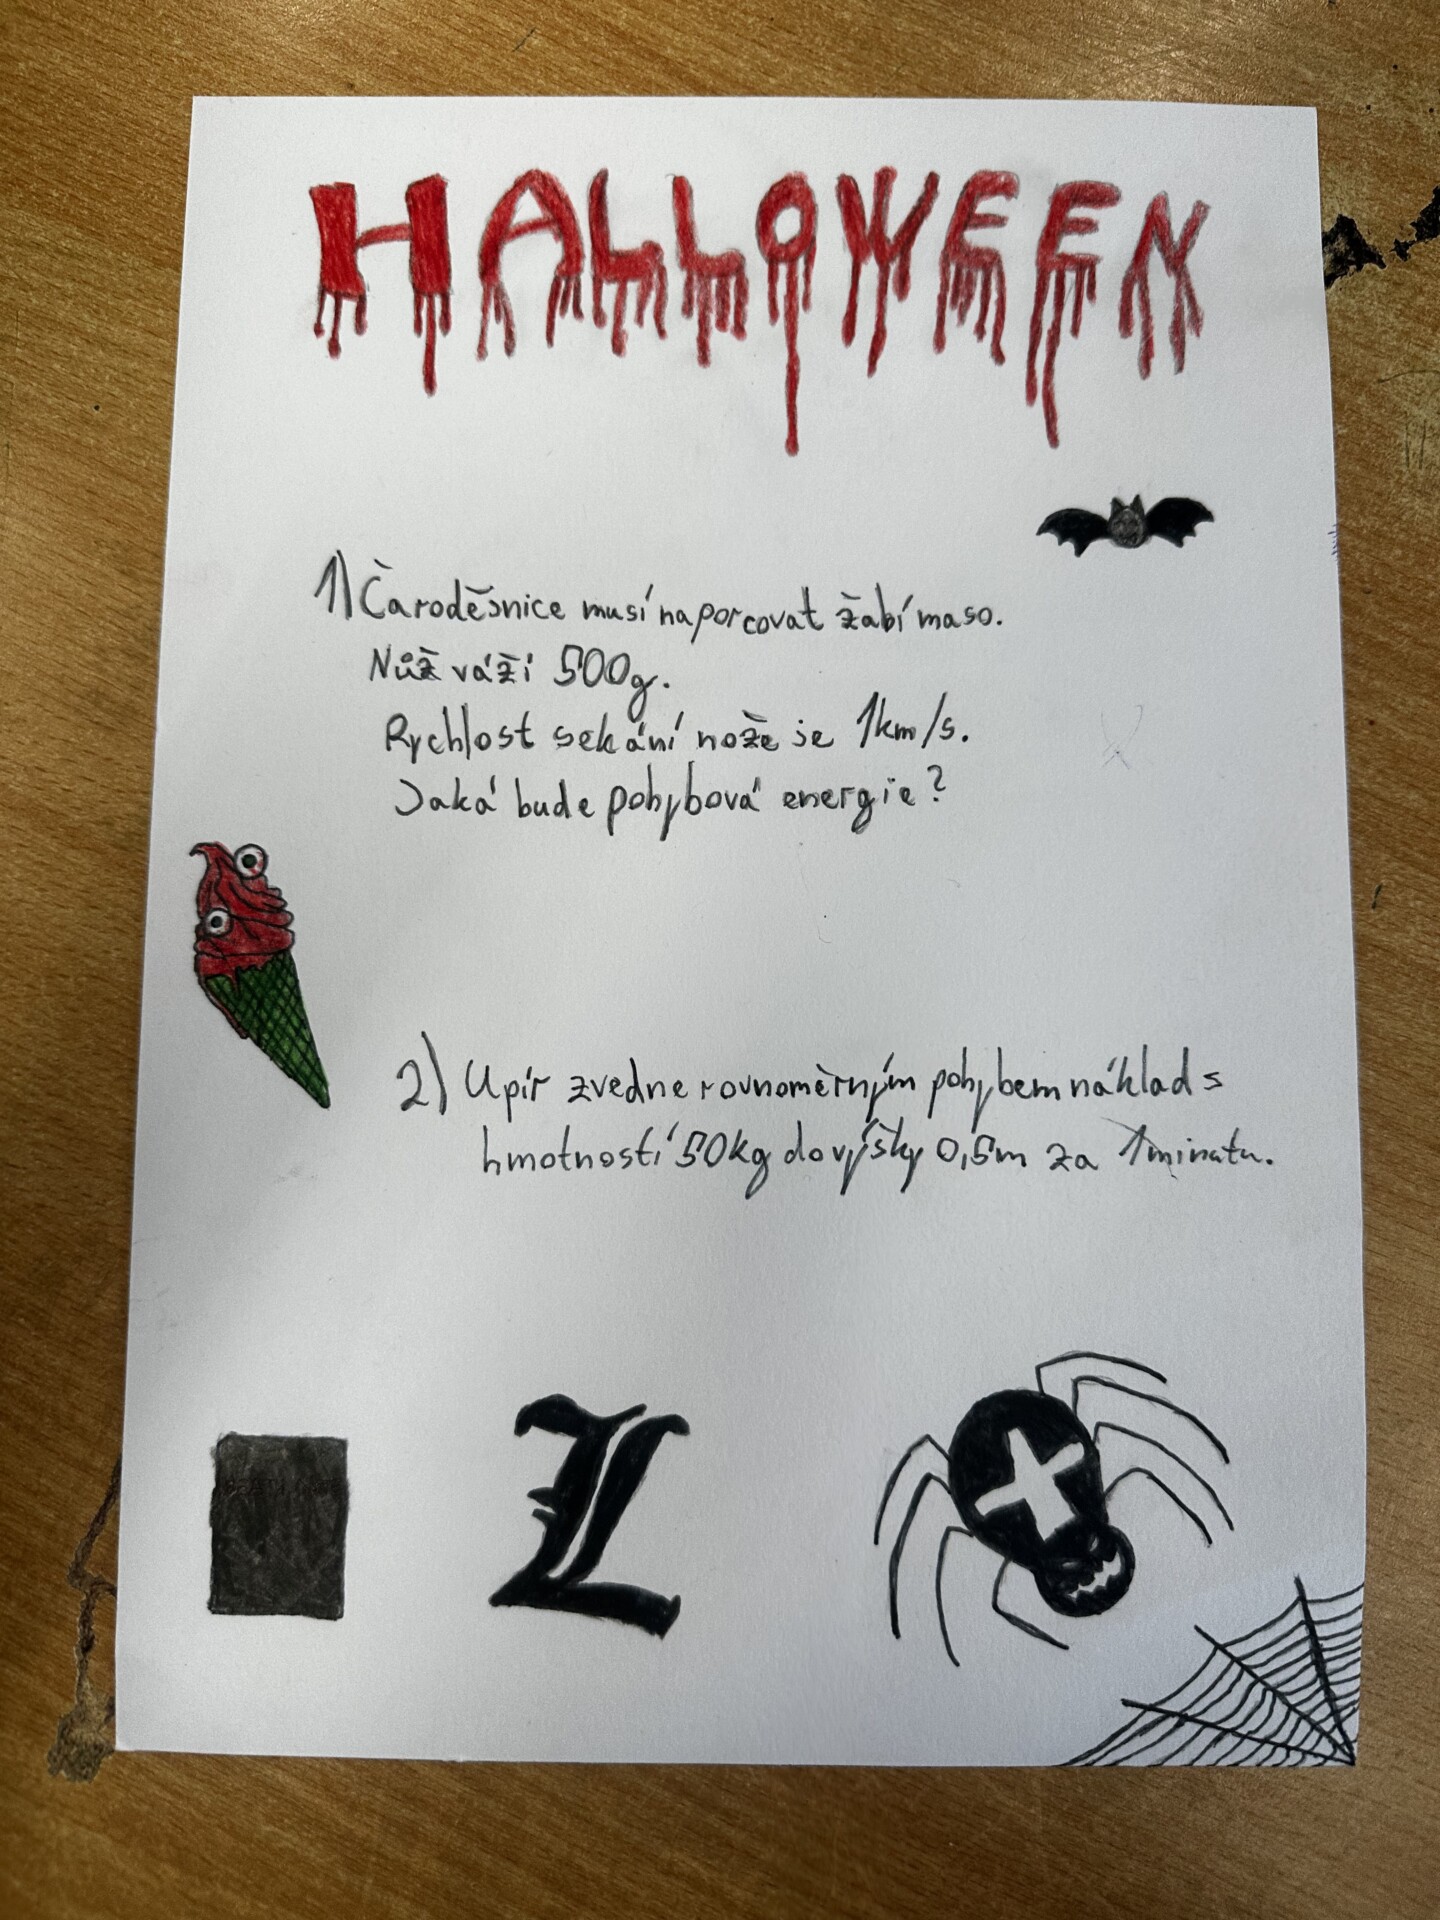 HALLOWEEN
1) Čaroděsnice musí naporcovat žabí maso.
Nůž váží 500g.
Rychlost sekání nože je 1km/s.
Jaká bude pohybová energie?
2) Upír zvedne rovnoměrným pohybem náklad s
hmotností 50kg do výšky 0,5m za 1minutu.
DEATH NOTE
L